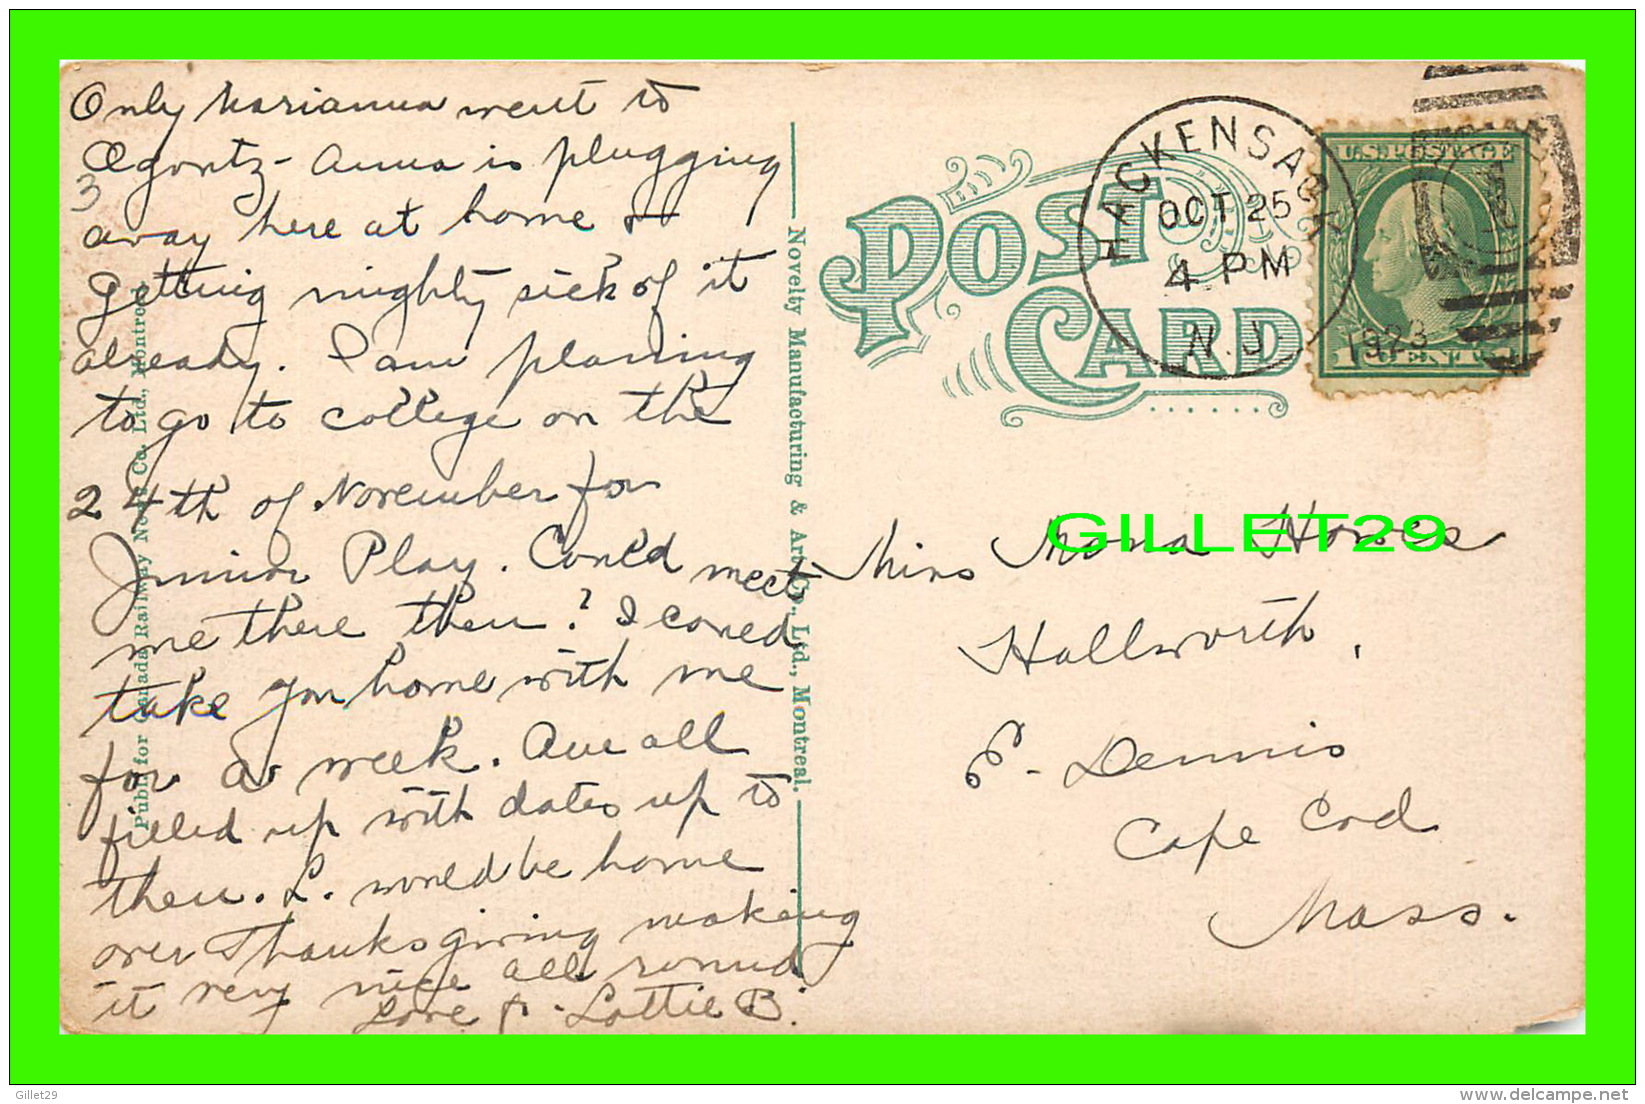 Only Marianna went to
Ogontz - Anna is plugging
3
away here at home &
getting mighty sick of it
already. I am planning
to go to college on the
24th of November for
Junior Play. Could meet
me there then? I could
take you home with me
for a week. Am all
filled up with dates up to
then. L. would be home
over Thanksgiving making
it very nice all round
Love - Lottie B.
Publ. for Canada Railway News Co. Ltd., Montreal
Novelty Manufacturing & Art Co., Ltd., Montreal.
POST CARD
HACKENSACK
OCT 25
4 PM
N.J.
1923
U.S. POSTAGE
1 CENT 1
GILLET29
Miss Mona Howes
Hallworth,
E. Dennis
Cape Cod
Mass.
Gillet29
delcampe.net